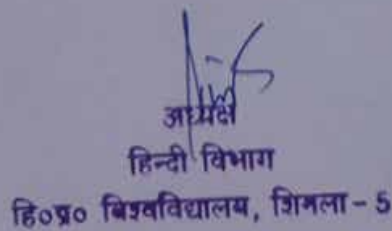 अध्यक्ष
हिन्दी विभाग
हि०प्र० विश्वविद्यालय, शिमला - 5